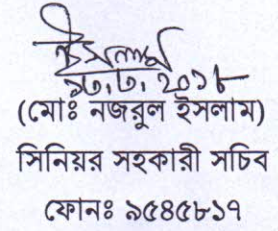 ১৩.৩.২০১৮
(মোঃ নজরুল ইসলাম)
সিনিয়র সহকারী সচিব
ফোনঃ ৯৫৪৫৮১৭